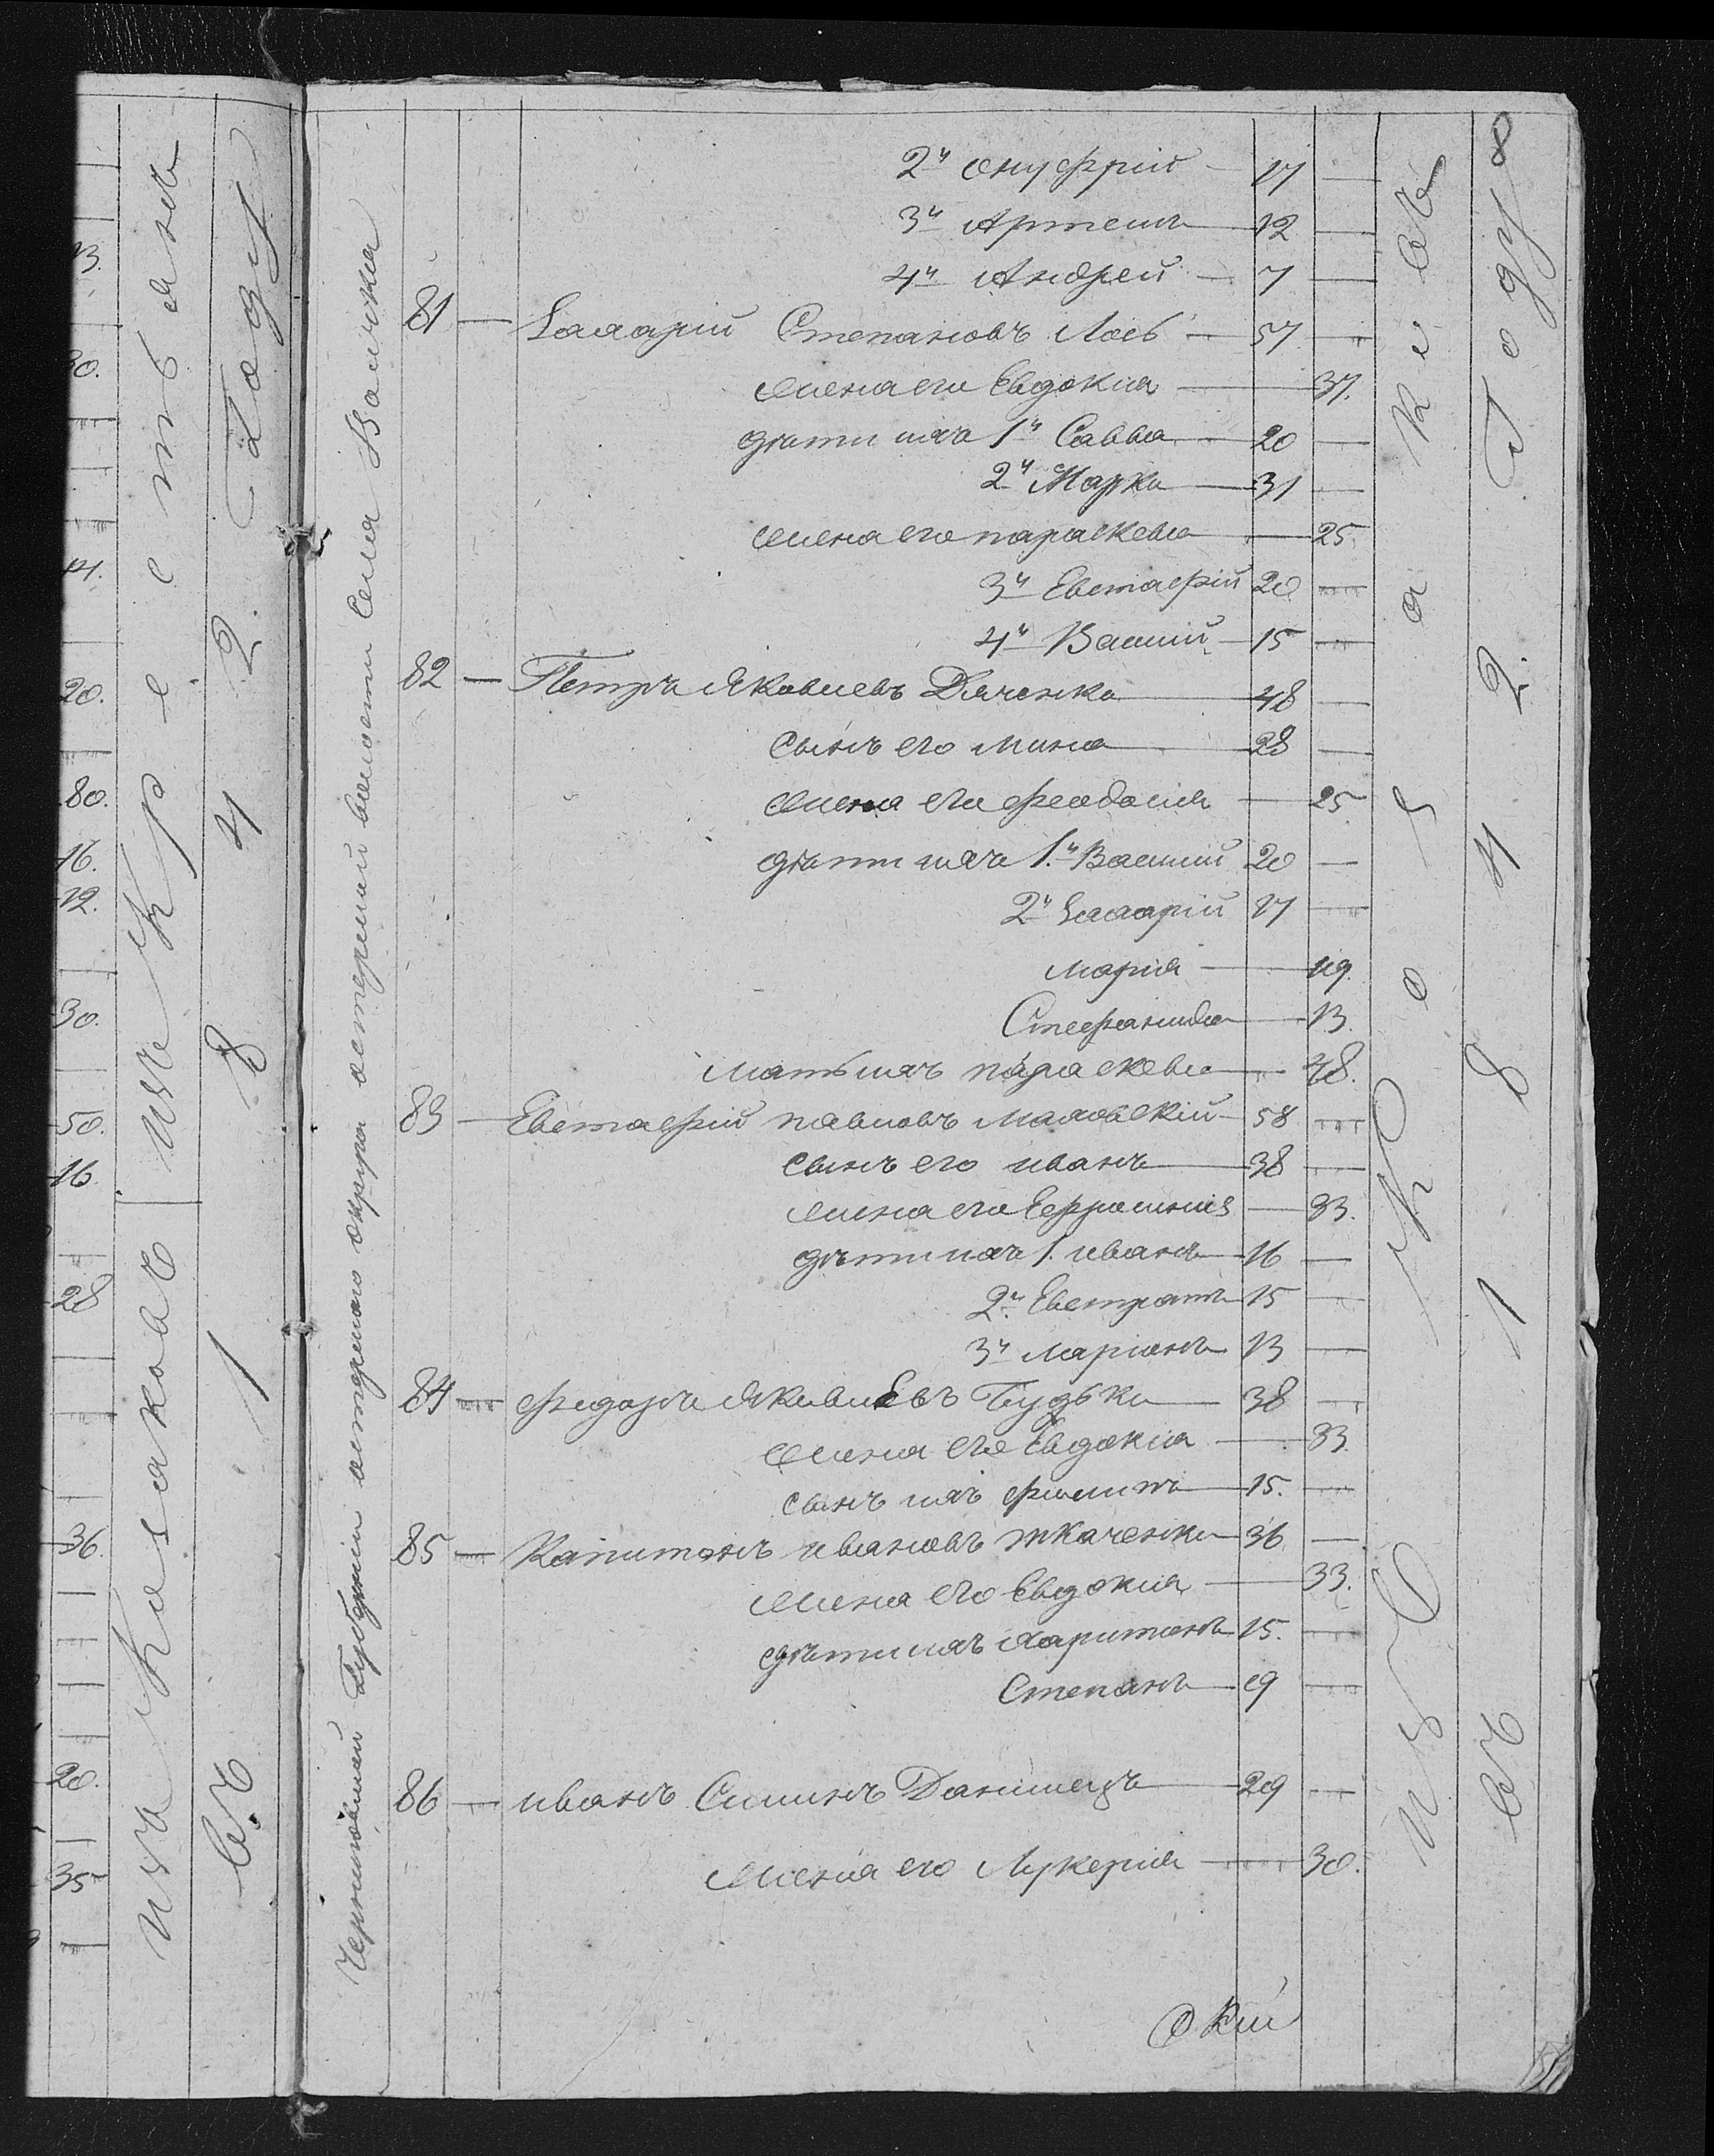 2й Онуфрій 17
3й Артемъ 12
4й Андрей 7
81 Захарій Степановъ Лось 57
жена его Евдокия 37.
дѣти ихъ 1й Савва 20
2й Марко 31
жена его параскева 25
3й Евстафій 20
4й Василий 15
82 Петръ Яковлевъ Дяченко 48
Сынъ его Мина 28
жена его феодосия 25
дѣти ихъ 1.й Василий 20
2й Захарій 17
Мария 19.
Стефанида 13.
Мать ихъ параскева 48.
83 Евстафій павловъ Маховский 58
Сынъ его иванъ 38
жена его Ефросиния 33.
дѣти ихъ 1. иванъ 16
2й Евстратъ 15
3й Ларионъ 13
84 федоръ Яковлевъ Гудько 38
жена его Евдокия 33.
Сынъ ихъ филипъ 15.
85 Капитонъ ивановъ ткаченко 36
жена его Евдокия 33.
дѣти ихъ харитонъ 15.
Степанъ 9
86 иванъ Силинъ Данилецъ 29
жена его Лукерия 30.
Черниговской Губернии остерскаго округа остерской волости Села
изъ Козаковъ
въ 1 8 4 2. Году
изъ Козаковъ изъ Крестьянъ
въ 1 8 4 2. Году
13.
30.
14.
20.
80.
16.
12.
30.
50.
16.
28
36.
20.
35